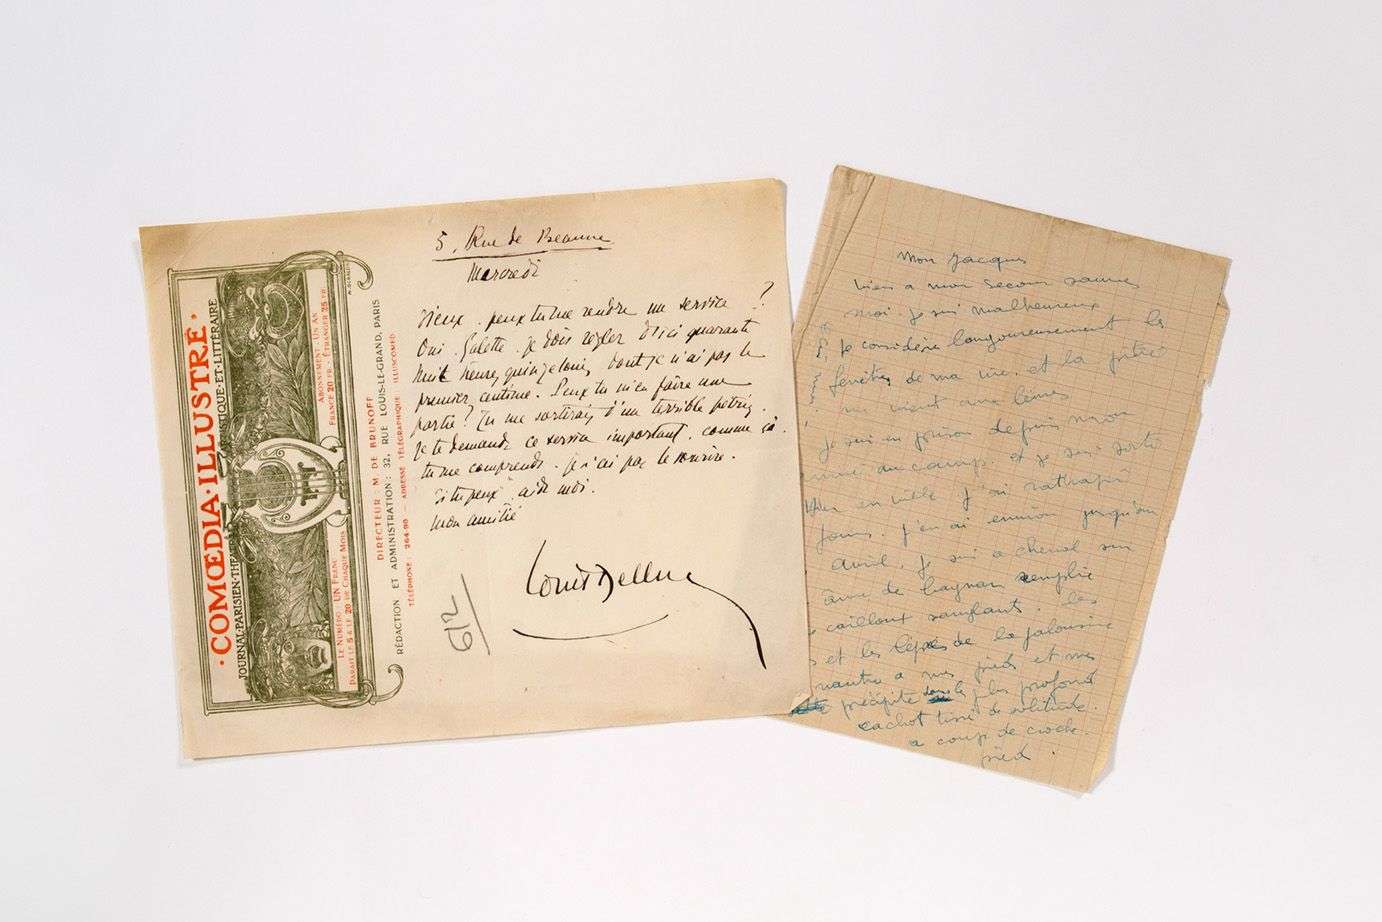 · COMŒDIA · ILLUSTRÉ ·
ABONNEMENT · UN AN
FRANCE 20 FR · ÉTRANGER 25 FR
LE NUMÉRO : UN FRANC
PARAIT LE 5 & LE 20 DE CHAQUE MOIS
DIRECTEUR M. DE BRUNOFF
RÉDACTION ET ADMINISTRATION : 32, RUE LOUIS-LE-GRAND, PARIS
TÉLÉPHONE : 264-90 — ADRESSE TÉLÉGRAPHIQUE : ILLUSCOMED
5, Rue de Beaune
Mercredi
Vieux, peux tu me rendre un service ?
Oui. Galette. Je dois régler d'ici quarante
huit heures quinze louis dont je n'ai pas le
premier centime. Peux tu m'en faire une
partie ? Tu me sortirais d'un terrible pétrin.
Je te demande ce service important, comme ça.
tu me comprends. Je n'ai pas le sourire.
Si tu peux aide moi.
Mon amitié
Louis Delluc
612
Mon Jacques
Viens a mon secour
moi je sui malheureux
Je considère langoureusement les
fenêtres de ma rue et la
me vient aux
Je sui en prison depuis mon
au camp. et je sui
en ville J'ai
jours. J'en ai environ jusqu'au
avril. Je sui a cheval sur
âme de remplie
cailloux sanglants les
et les de la jalousie
a mes pieds et me
précipite dans le plus profond
cachot tissé de solitude.
a coup de croche
pied.